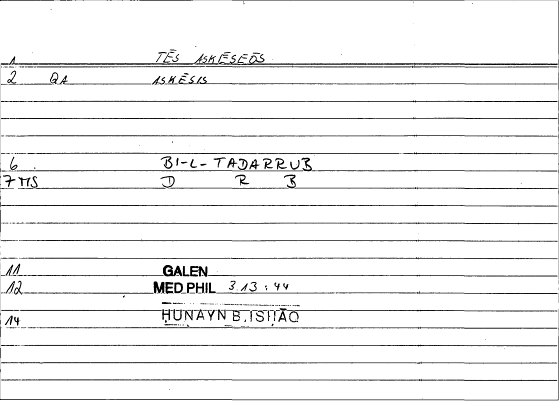 1 TĒS ASKĒSEŌS
2 QA ASKĒSIS
6 BI-L-TADARRUB
7 MS D R B
11 GALEN
12 MED PHIL 3.13:44
14 HUNAYN B. ISHĀQ